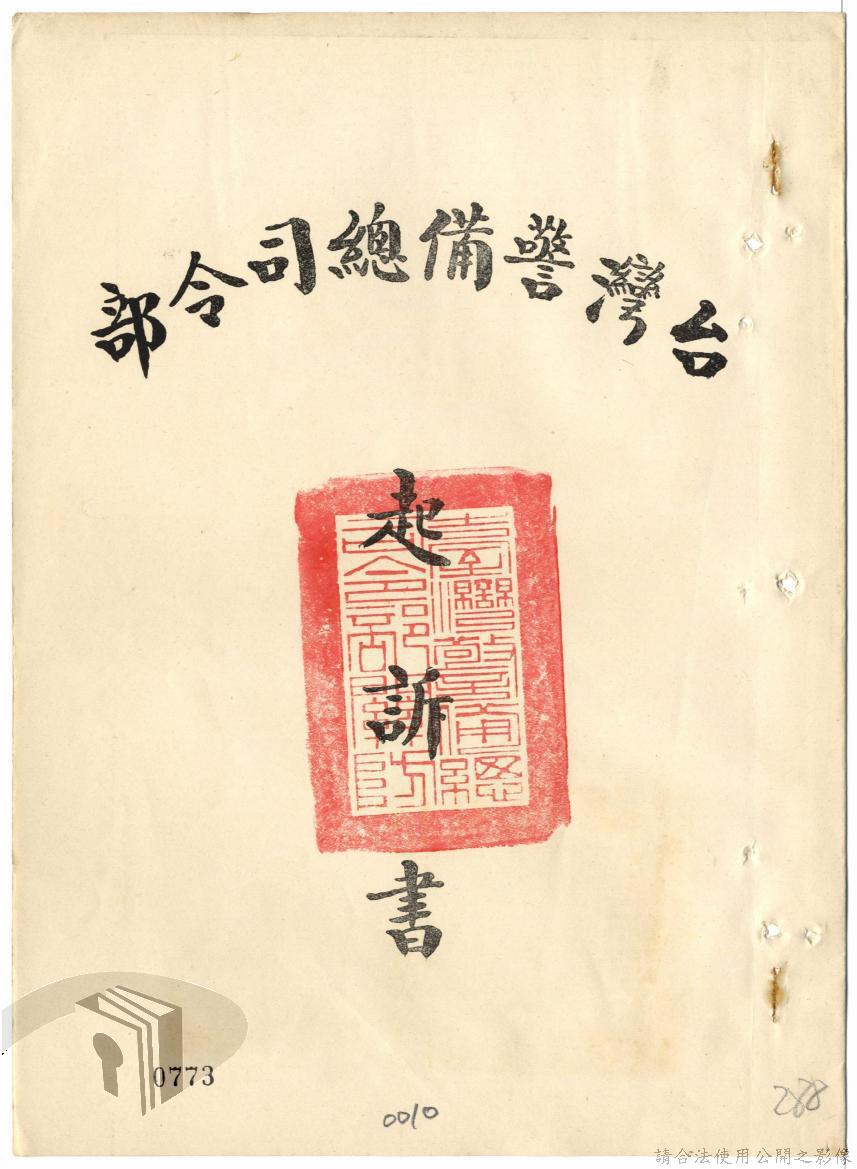 台灣警備總司令部
起訴書
臺灣警備總司令部軍法處
0773
0010
288
請合法使用公開之影像